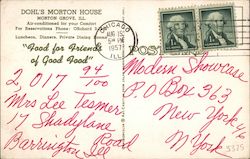 DOHL'S MORTON HOUSE
MORTON GROVE, ILL.
Air-conditioned for your Comfort
For Reservations Phone: ORchard
Luncheon, Dinners, Private Dining
"Good for Friends
of Good Food"
CHICAGO
AUG 15
1957
ILL.
POST
2,017 94/100
Mrs Lee Tesmer
17 Shadylane
Road
Barrington Ill
Modern Showcase
P.O Box 363
New York
N York
3375